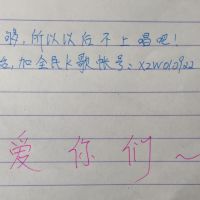 够,所以以后不上唱吧!
加全民K歌帐号:xzw012922
爱你们~